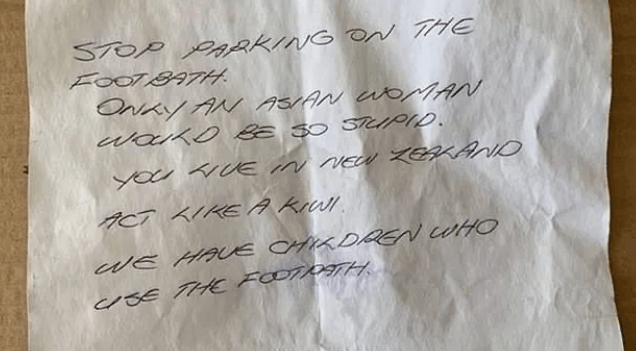 STOP PARKING ON THE
FOOTPATH.
ONLY AN ASIAN WOMAN
WOULD BE SO STUPID.
YOU LIVE IN NEW ZEALAND
ACT LIKE A KIWI.
WE HAVE CHILDREN WHO
USE THE FOOTPATH.